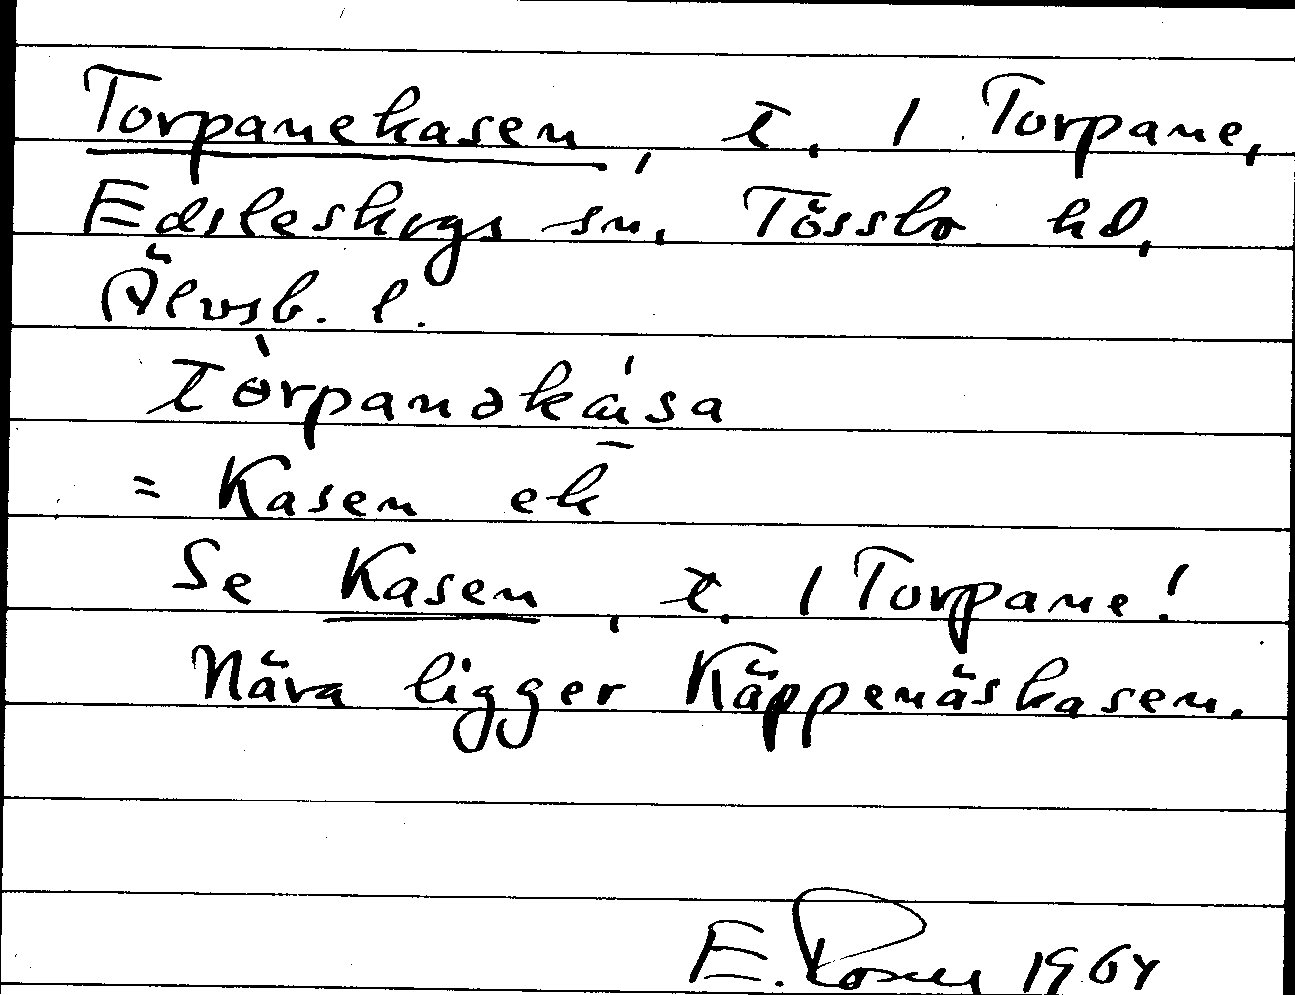 Torpanekasen, t. / Torpane,
Edsleskogs sn. Tössbo hd,
Älvsb. l.
tòrpanəkása
= Kasen ek
Se Kasen, t. / Torpane!
Nära ligger Käppenäskasen.
E. 1964